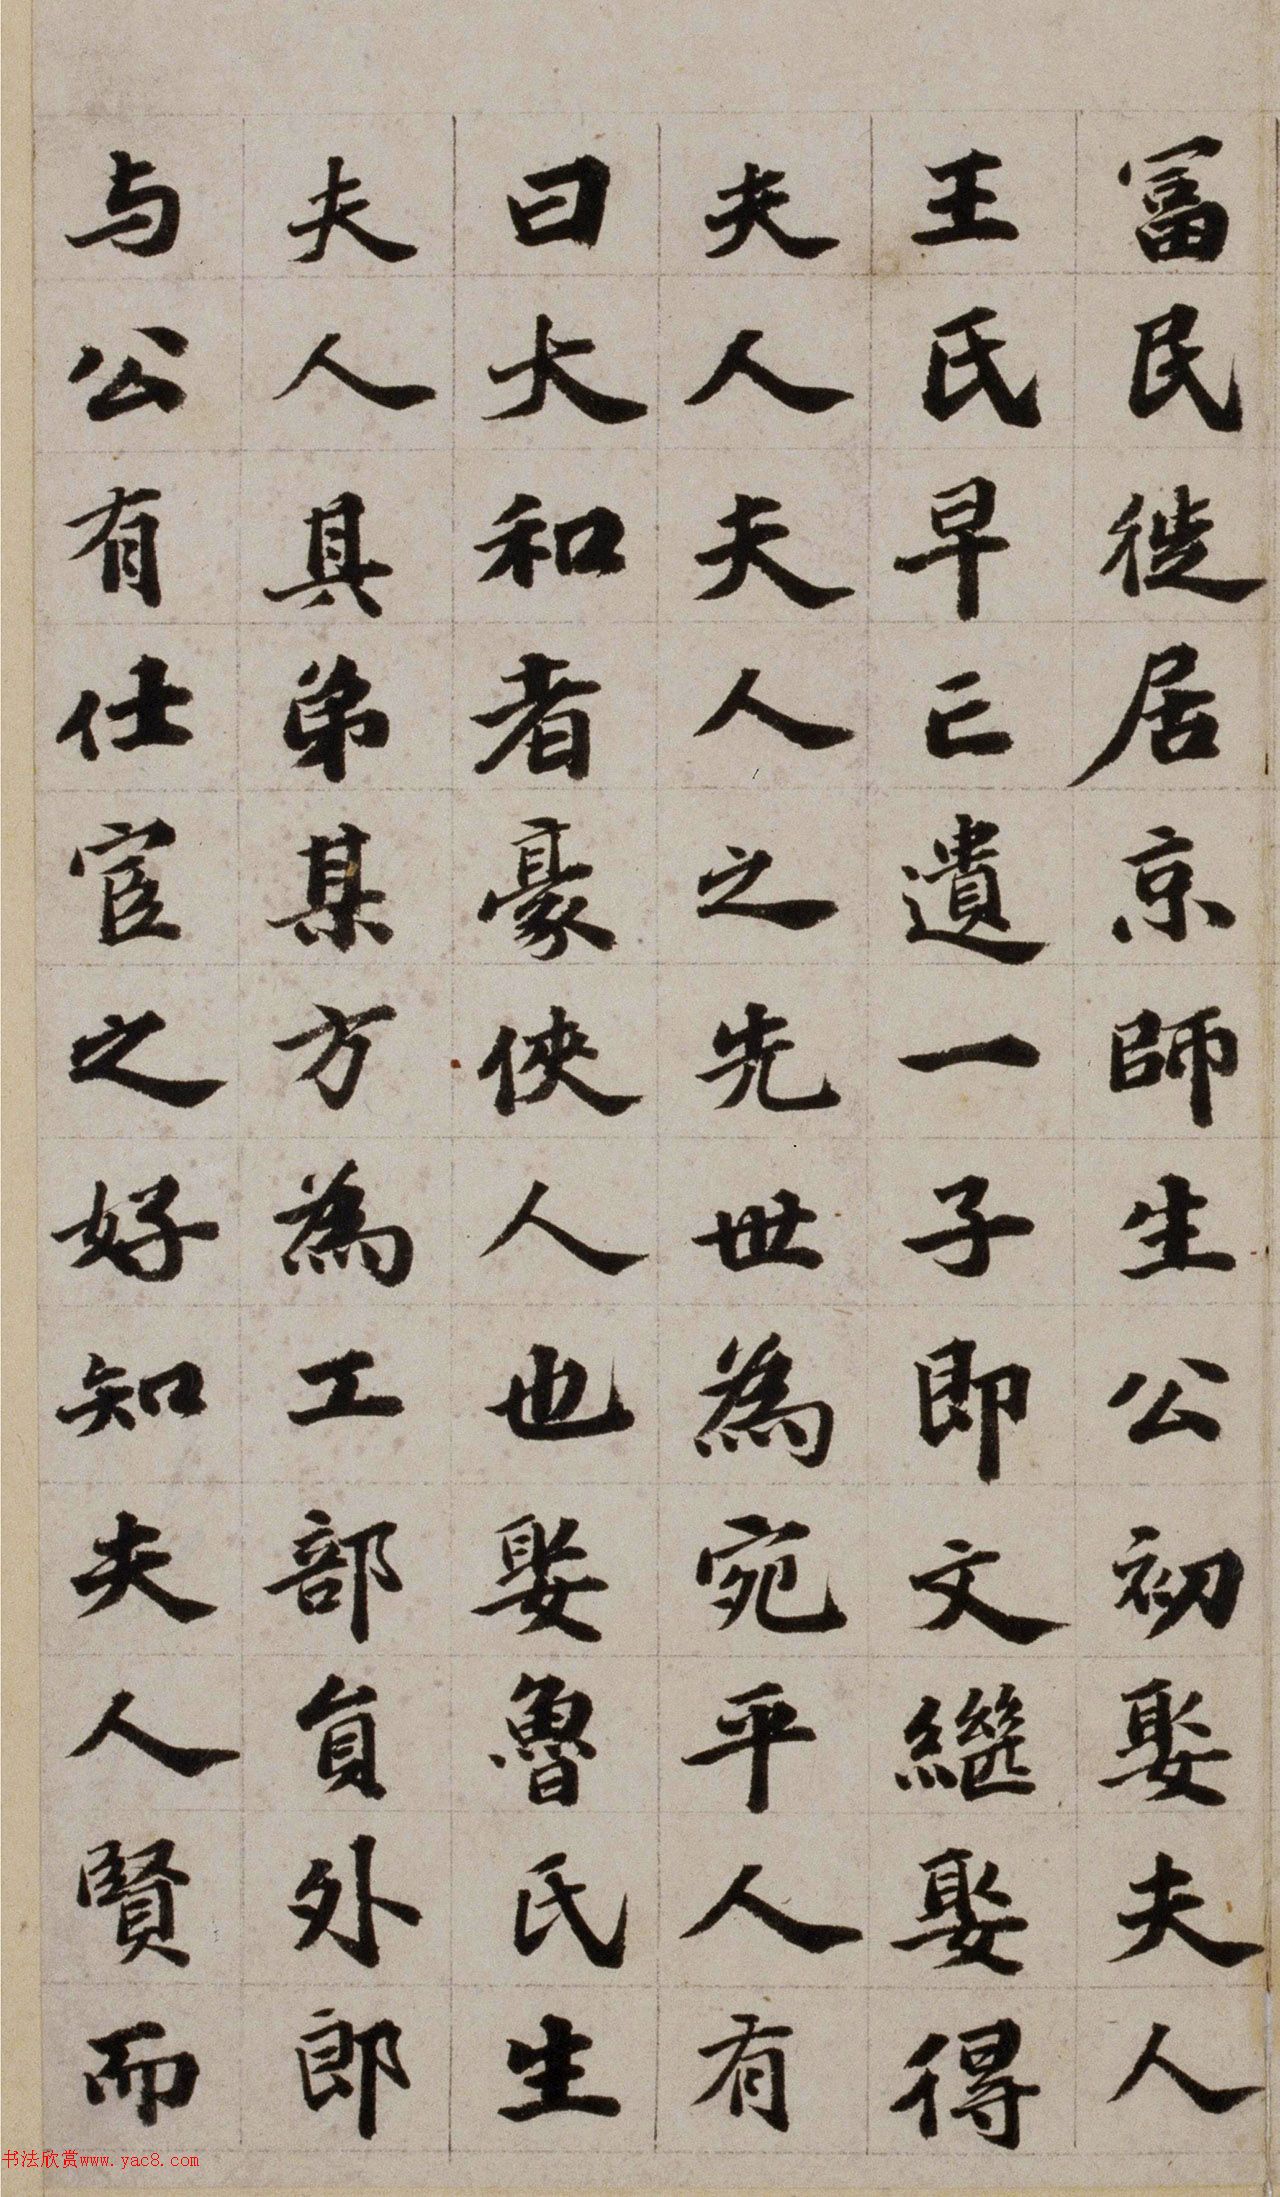 冨民徙居京師生公初娶夫人
王氏早亡遺一子即文継娶得
夫人夫人之先世為宛平人有
曰大和者豪俠人也娶魯氏生
夫人具弟某方為工部員外郎
与公有仕宦之好知夫人賢而
书法欣赏www.yac8.com